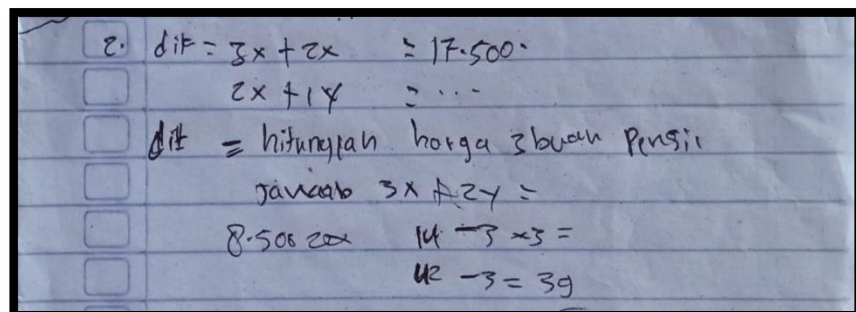 2. dik = 3x + 2x = 17.500.
2x + 14 = ...
dit = hitunglah harga 3 buah pensil
Jawab 3x + 2y =
8.500 14 - 3 x 3 =
42 - 3 = 39